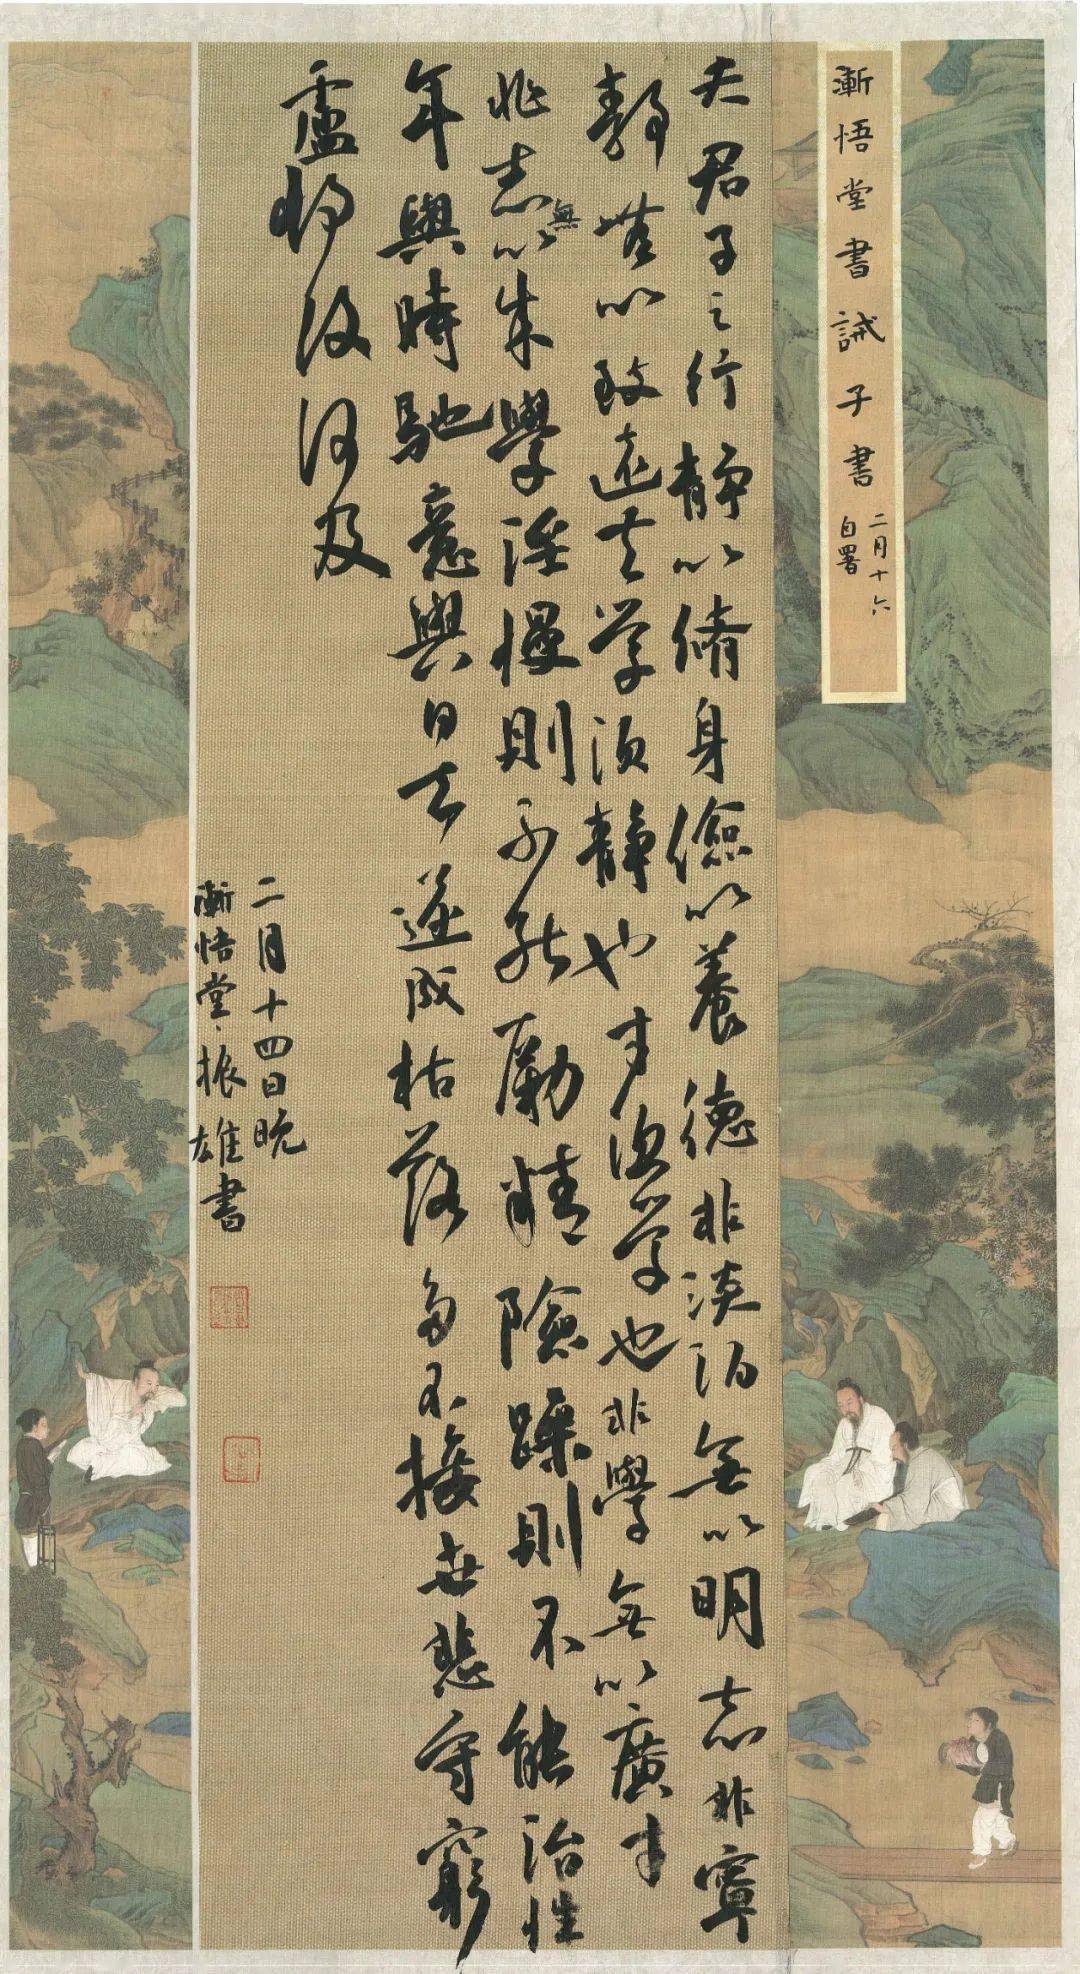 漸悟堂書誡子書
二月十六
自署
夫君子之行靜以脩身儉以養德非淡泊無以明志非寧
靜無以致遠夫學須靜也才須學也非學無以廣才
非志無以成學淫慢則不能勵精險躁則不能治性
年與時馳意與日去遂成枯落多不接世悲守窮
盧將復何及
二月十四日晚
漸悟堂振雄書